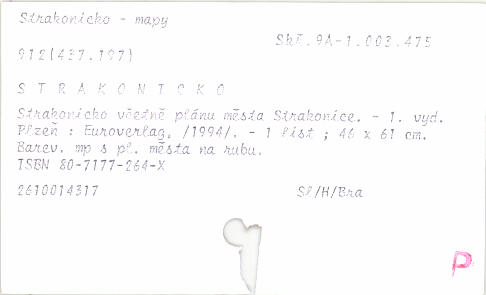 Strakonicko - mapy
Skř. 9A-1.003.475
912(437.197)
S T R A K O N I C K O
Strakonicko včetně plánu města Strakonice. - 1. vyd.
Plzeň : Euroverlag, /1994/. - 1 list ; 46 x 61 cm.
Barev. mp s pl. města na rubu.
ISBN 80-7177-264-X
2610014317
Sl/H/Bra
P